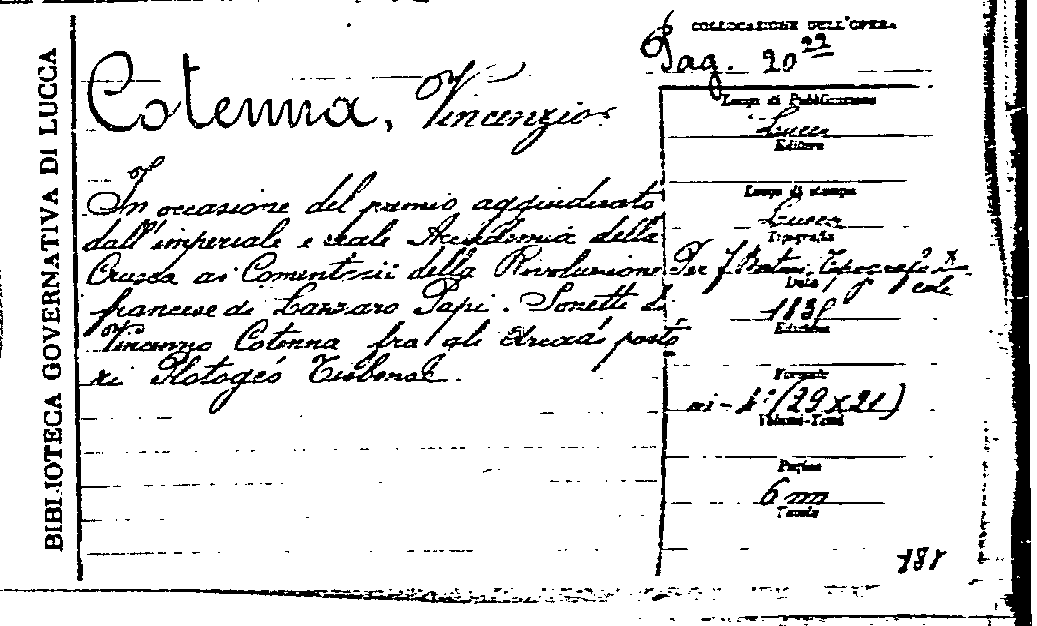 BIBLIOTECA GOVERNATIVA DI LUCCA
COLLOCAZIONE DELL'OPERA
Pag. 20 22
Cotenna, Vincenzio
In occasione del premio aggiudicato
dall'imperiale e reale Accademia della
Crusca ai Comentarii della Rivoluzione
francese di Lazzaro Papi. Sonetti di
Vincenzo Cotenna fra gli Arcadi
Luogo di Pubblicazione
Lucca
Editore
Luogo di stampa
Lucca
Tipografia
Per Tipografo
Data
Edizione
Formato
(29x21)
Volumi-Tomi
Pagine
6 nn
Tavole